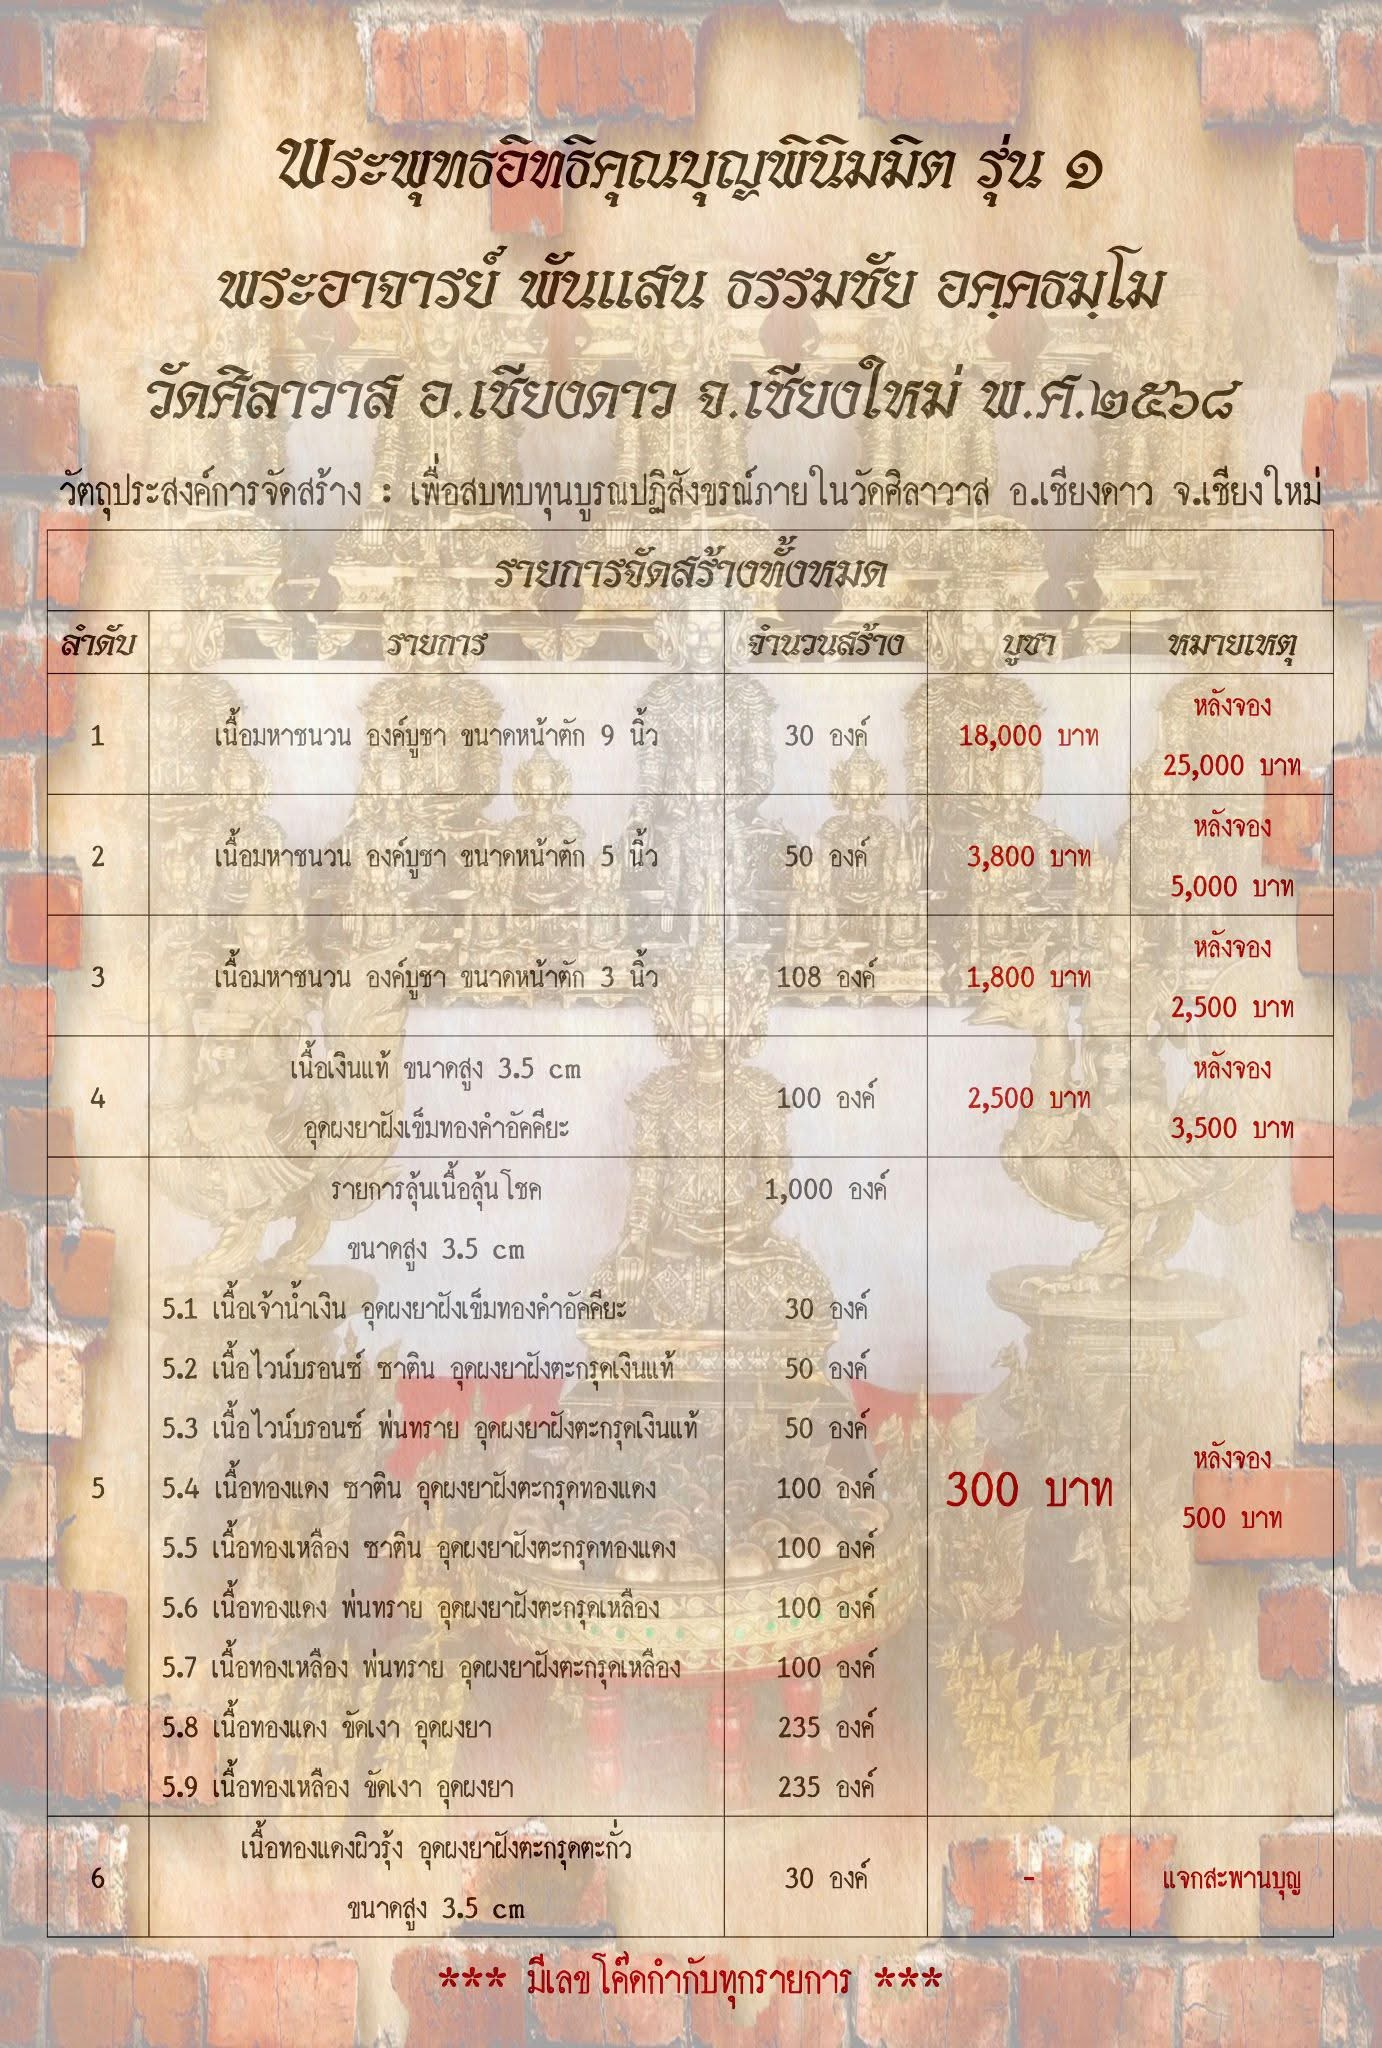 พระพุทธอิทธิคุณบุญพินิมมิต รุ่น ๑
พระอาจารย์ พันแสน ธรรมชัย อคฺคธมฺโม
วัดศิลาวาส อ.เชียงดาว จ.เชียงใหม่ พ.ศ.๒๕๖๘
วัตถุประสงค์การจัดสร้าง : เพื่อสบทบทุนบูรณปฏิสังขรณ์ภายในวัดศิลาวาส อ.เชียงดาว จ.เชียงใหม่
รายการจัดสร้างทั้งหมด
ลำดับ รายการ จำนวนสร้าง บูชา หมายเหตุ
1 เนื้อมหาชนวน องค์บูชา ขนาดหน้าตัก 9 นิ้ว 30 องค์ 18,000 บาท หลังจอง
25,000 บาท
2 เนื้อมหาชนวน องค์บูชา ขนาดหน้าตัก 5 นิ้ว 50 องค์ 3,800 บาท หลังจอง
5,000 บาท
3 เนื้อมหาชนวน องค์บูชา ขนาดหน้าตัก 3 นิ้ว 108 องค์ 1,800 บาท หลังจอง
2,500 บาท
4 เนื้อเงินแท้ ขนาดสูง 3.5 cm
อุดผงยาฝังเข็มทองคำอัคคียะ 100 องค์ 2,500 บาท หลังจอง
3,500 บาท
รายการลุ้นเนื้อลุ้นโชค 1,000 องค์
ขนาดสูง 3.5 cm
5.1 เนื้อเจ้าน้ำเงิน อุดผงยาฝังเข็มทองคำอัคคียะ 30 องค์
5.2 เนื้อไวน์บรอนซ์ ซาติน อุดผงยาฝังตะกรุดเงินแท้ 50 องค์
5.3 เนื้อไวน์บรอนซ์ พ่นทราย อุดผงยาฝังตะกรุดเงินแท้ 50 องค์
5 5.4 เนื้อทองแดง ซาติน อุดผงยาฝังตะกรุดทองแดง 100 องค์ 300 บาท หลังจอง
500 บาท
5.5 เนื้อทองเหลือง ซาติน อุดผงยาฝังตะกรุดทองแดง 100 องค์
5.6 เนื้อทองแดง พ่นทราย อุดผงยาฝังตะกรุดเหลือง 100 องค์
5.7 เนื้อทองเหลือง พ่นทราย อุดผงยาฝังตะกรุดเหลือง 100 องค์
5.8 เนื้อทองแดง ขัดเงา อุดผงยา 235 องค์
5.9 เนื้อทองเหลือง ขัดเงา อุดผงยา 235 องค์
6 เนื้อทองแดงผิวรุ้ง อุดผงยาฝังตะกรุดตะกั่ว
ขนาดสูง 3.5 cm 30 องค์ - แจกสะพานบุญ
*** มีเลขโค๊ดกำกับทุกรายการ ***